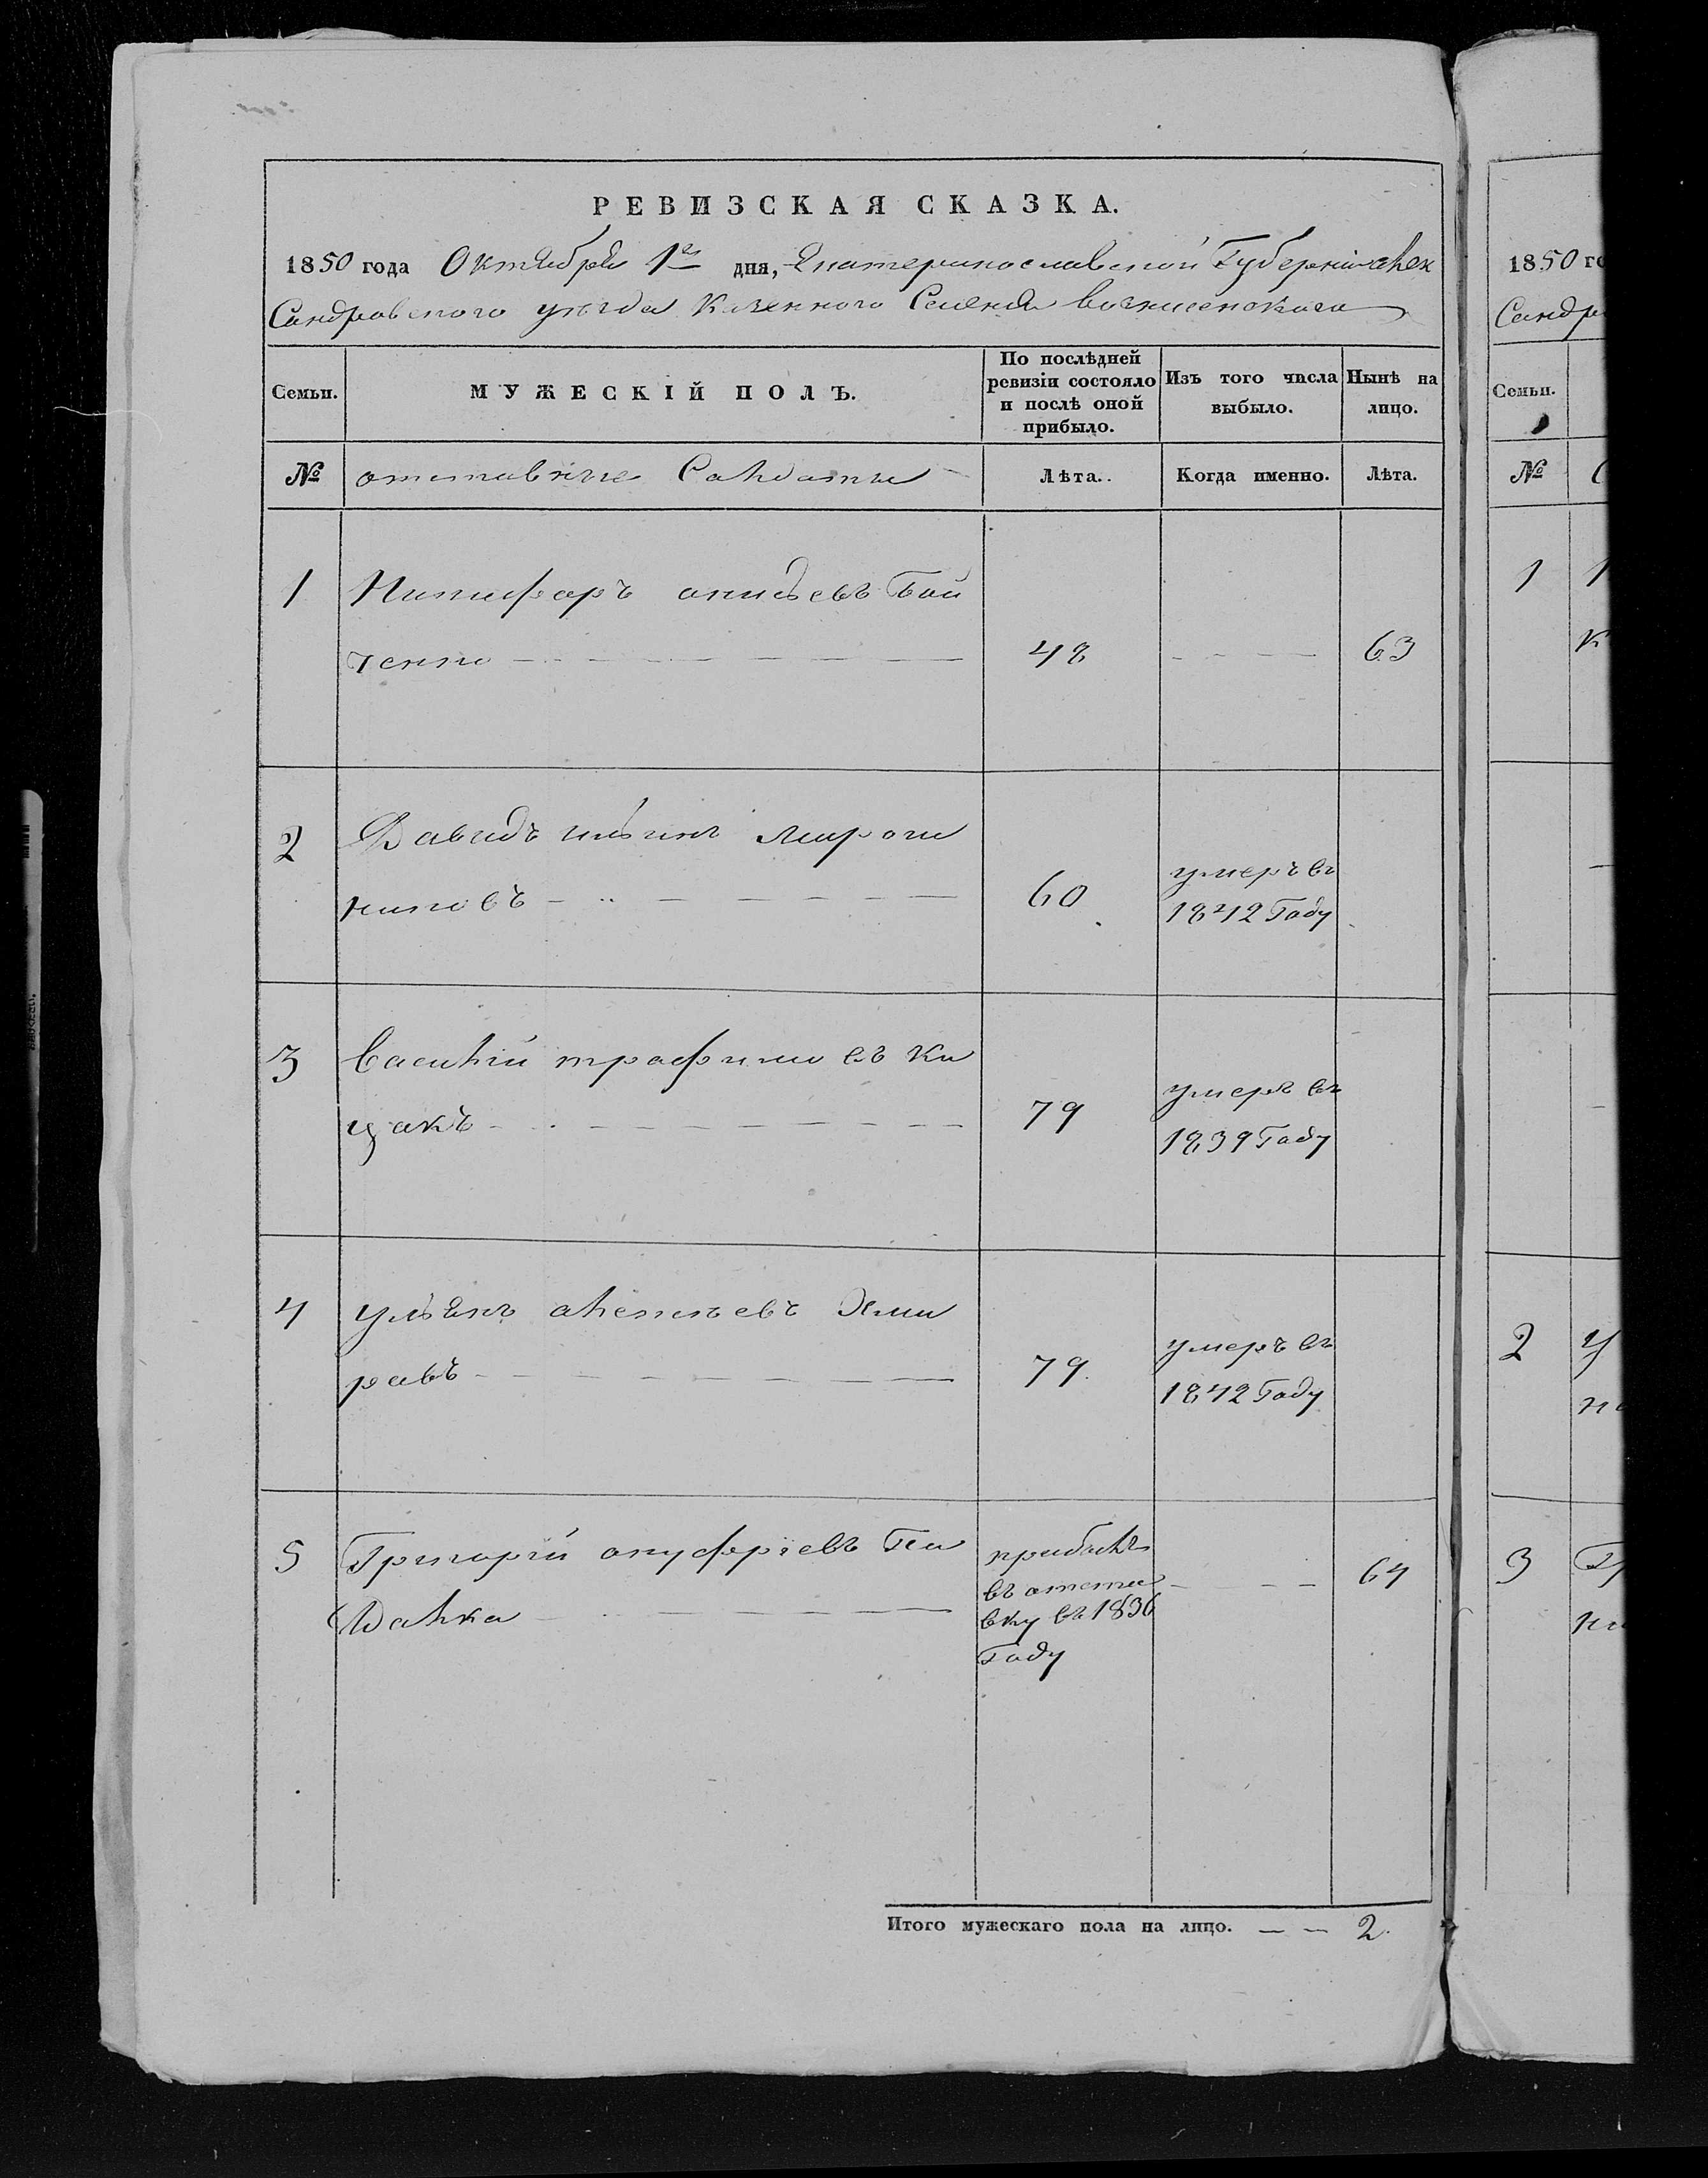 РЕВИЗСКАЯ СКАЗКА.
1850 года Октября 1го дня, Екатеринославской Губерніи Алек
Сандровского уезда Казенного Селенія вознесенского
Семьи. МУЖЕСКІЙ ПОЛЪ. По послѣдней ревизіи состояло и послѣ оной прибыло. Изъ того числа выбыло. Нынѣ на лицо.
№ отставные Салдаты Лѣта. Когда именно. Лѣта.
1 Никифоръ Бой
ченко 48 63
2 Давидъ ильинъ мирош
никовъ 60 умеръ въ
1842 Году
3 Василій трофимовъ Ки
цакъ 79 умеръ въ
1839 Году
4 ульянъ алексеевъ Хма
равъ 79 умеръ въ
1842 Году
5 Григорій онуфріевъ По
Далка прибылъ
въ отста
вку въ 1836
Году 64
Итого мужескаго пола на лицо. 2.
1850 го
Сандро
Семьи.
№
1
К
2 У
3 Гр